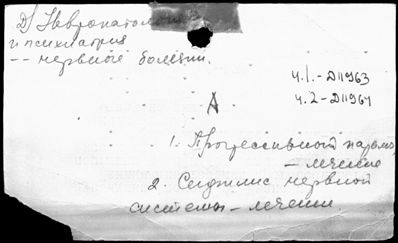 Д) Невропатол
и психиатрия
-- нервные болезни.
ч.1.-Д11963
ч.2-Д11964
А
1. Прогрессивной
- лечение
2. Сифилис нервной
системы - лечение.